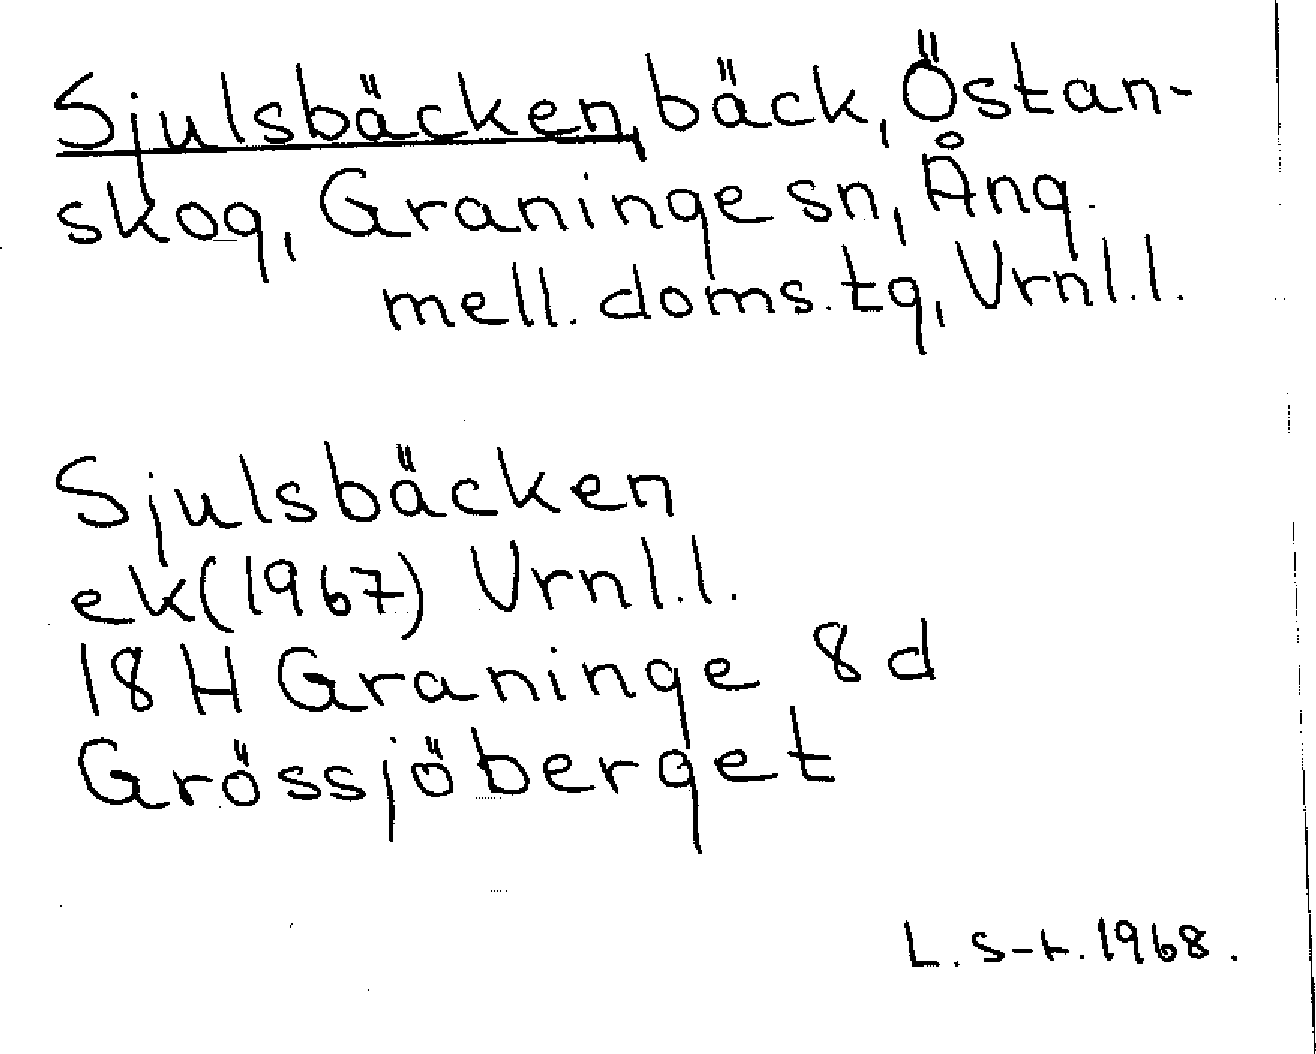 Sjulsbäcken, bäck, Östan-
skog, Graninge sn, Ång.
mell. doms. tg, Vrnl.l.
Sjulsbäcken
ek(1967) Vrnl.l.
18H Graninge 8d
Grössjöberget
L. S-t. 1968.